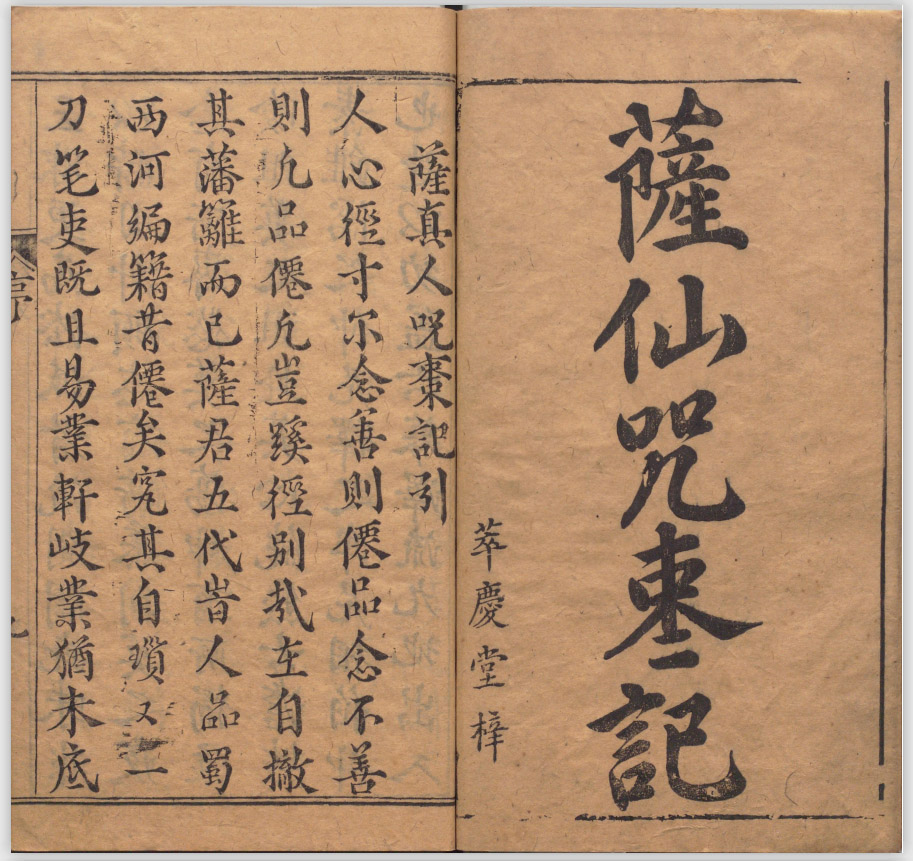 薩仙咒枣記
萃慶堂梓
薩真人呪棗記引
人心徑寸尔念善則僊品念不善
則凡品僊凡豈蹊徑別哉在自撤
其藩籬而已薩君五代旹人品蜀
西河編籍昔僊矣究其自瓚又一
刀笔吏既且易業軒岐業猶未底